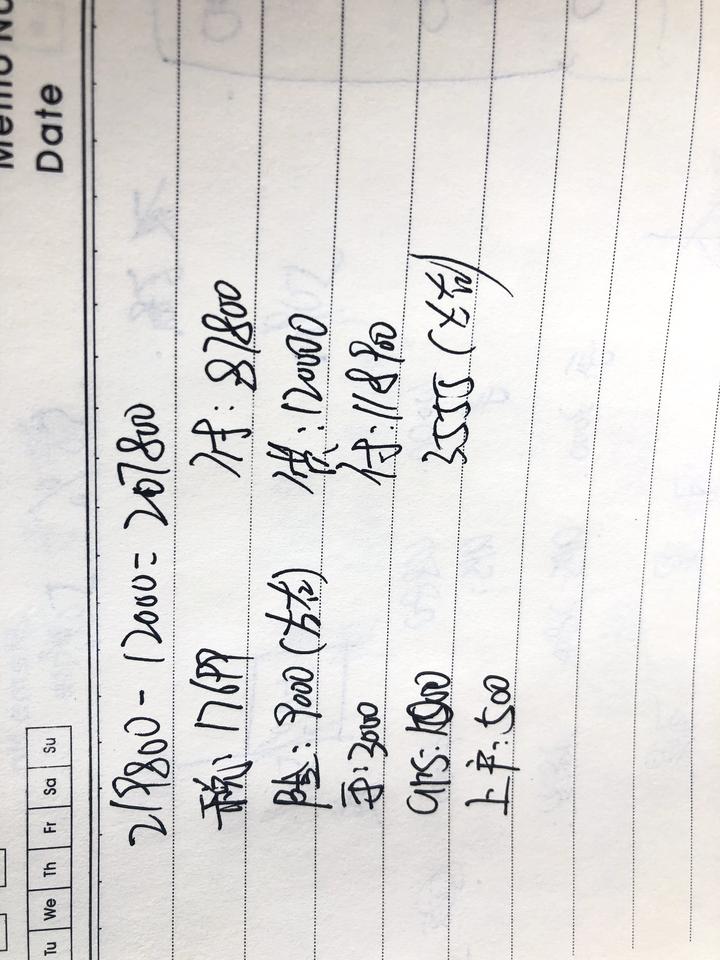 Memo No
Date
Tu We Th Fr Sa Su
219800 - 12000 = 207800
税: 17699 付: 87800
险: 9000 (左右) 贷: 120000
平: 3000 付: 118800
GPS: 1800 3555 (左右)
上户: 500